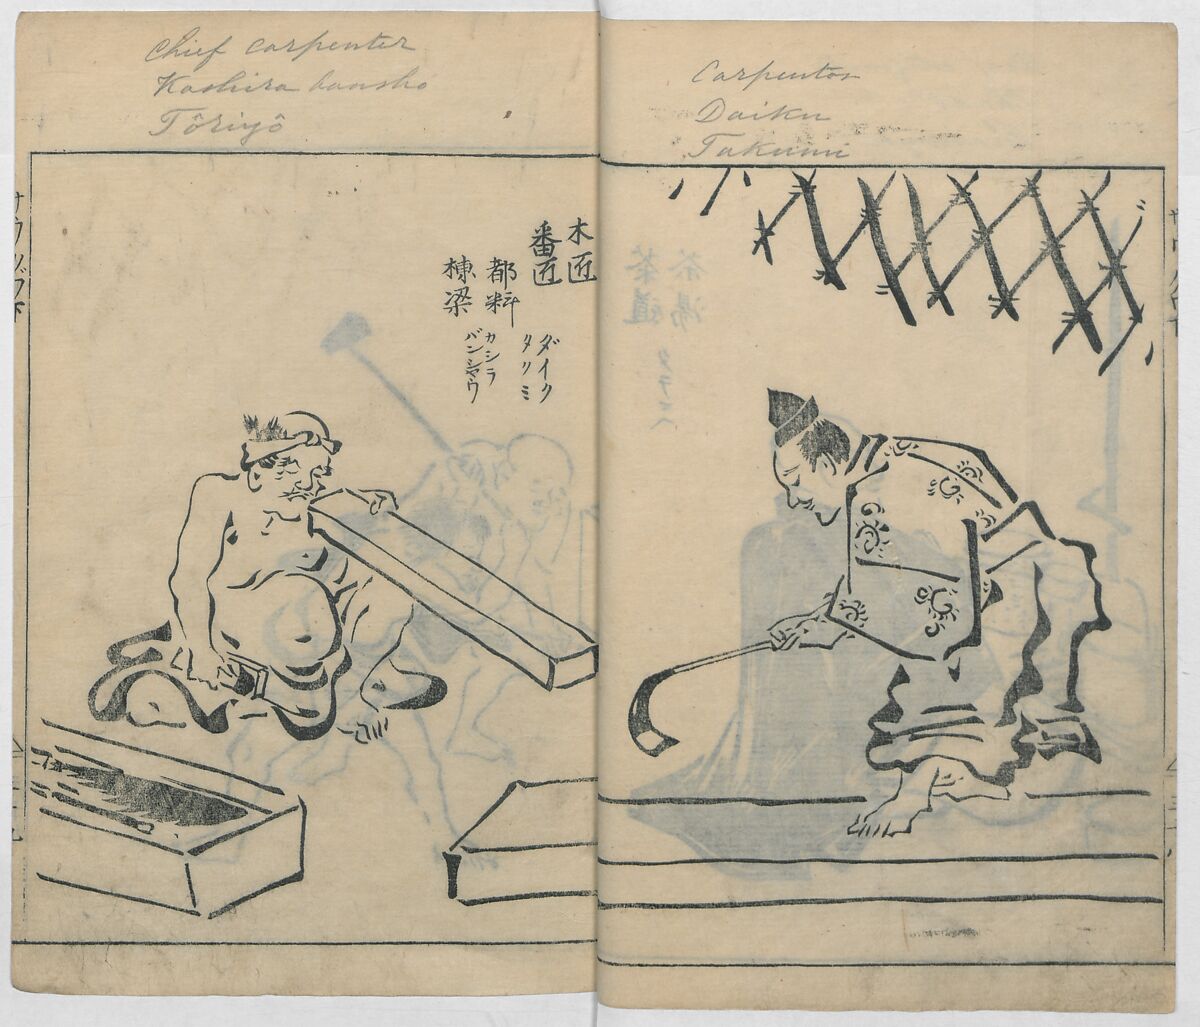 Chief carpenter
Kashira banshō
Tôriyô
Carpenter
Daiku
Takumi
木匠
番匠
都料
棟梁
ダイク
タクミ
カシラ
バンシャウ